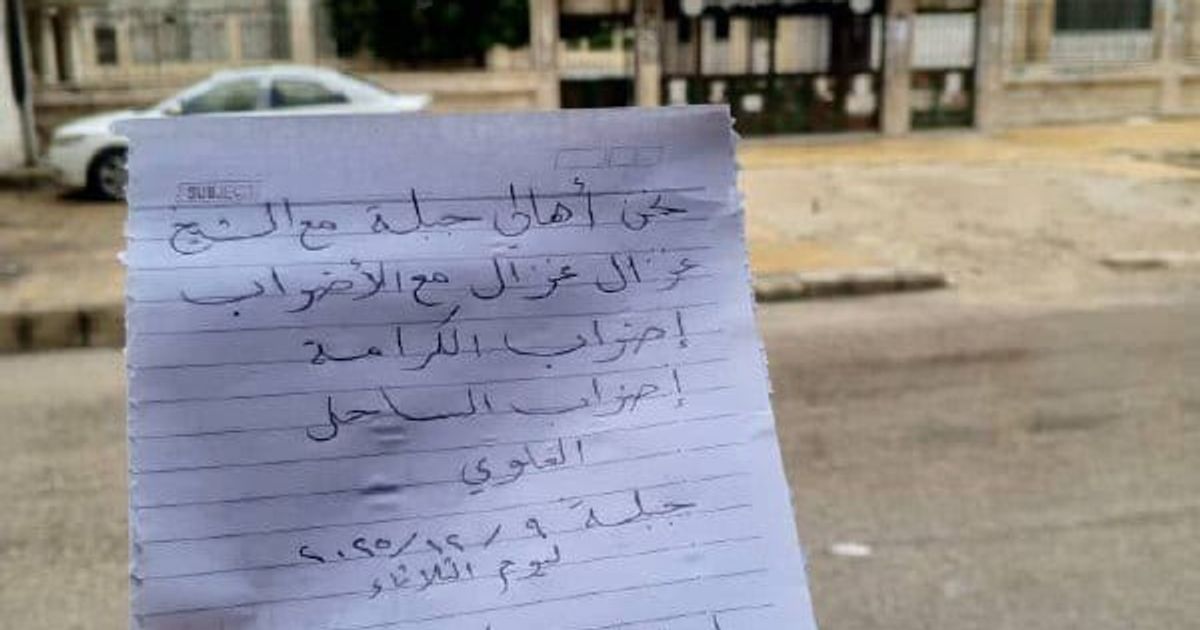 SUBJECT
نحن أهالي جبلة مع الشيخ
غزال غزال مع الأضراب
إضراب الكرامة
إضراب الساحل
العلوي
جبلة ٩ / ١٢ / ٢٠٢٥
ليوم الثلاثاء